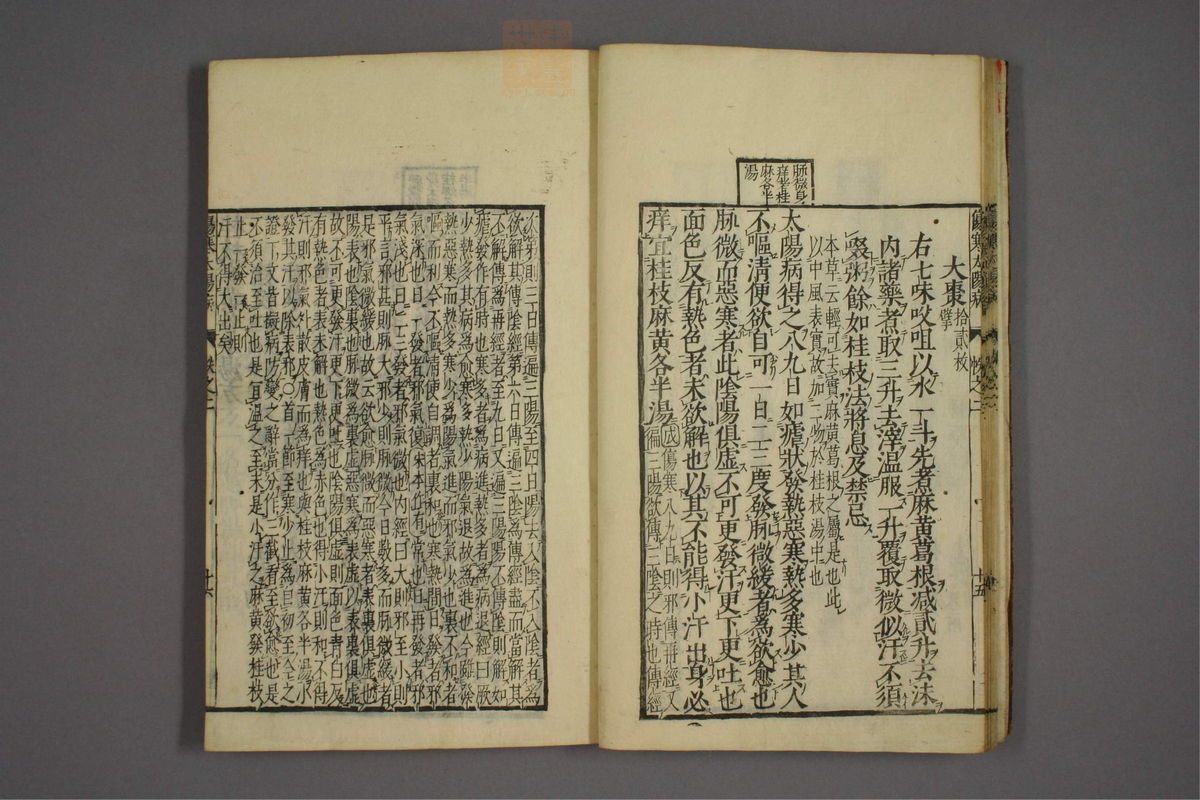 傷寒太陽病
十五
大棗拾貳枚擘
右七味㕮咀以水一斗先煮麻黃葛根減貳升去沫
內諸藥煮取三升去滓溫服一升覆取微似汗不須
啜粥餘如桂枝法將息及禁忌
本草云輕可去實麻黃葛根之屬是也此
以中風表實故加二物於桂枝湯中也
脉微身
痒者桂
麻各半
湯
太陽病得之八九日如瘧狀發熱惡寒熱多寒少其人
不嘔清便欲自可一日二三度發脉微緩者為欲愈也
脉微而惡寒者此陰陽俱虛不可更發汗更下更吐也
面色反有熱色者未欲解也以其不能得小汗出身必
痒宜桂枝麻黃各半湯
成傷寒八九日則邪傳再經又
徧三陽欲傳三陰之時也傳經
次第則三日傳遍三陽至四日陽去入陰不入陰者為
欲解其傳陰經第六日傳遍三陰為傳經盡而當解其
不解傳為再經者至九日又遍三陽陽不傳陰則解如
瘧發作有時也寒多者為病進熱多者為病退經曰厥
少熱多其病為愈寒多熱少陽氣退故為進也今雖發
熱惡寒而熱多寒少為陽氣進而邪氣少也裏不和者
嘔而利今不嘔清便自調者裏和也寒熱間日發者邪
氣深也日一發者邪氣復深本位者常也日再發者邪
氣淺也日二三發者邪氣微也內經曰大則邪至小則
平言邪甚則脉大邪少則脉微今日數多而脉微緩者
是邪氣微緩也故云欲愈脉微而惡寒者表裏俱虛也
陽表也陰裏也脉微為裏虛惡寒為表虛以表裏俱虛
故不可更發汗更下更吐也陰陽俱虛則面色青白反
有熱色者表未解也熱色為赤色也得小汗則和不得
汗則邪氣外散皮膚而為痒也與桂枝麻黃各半湯小
發其汗以除表邪○首一節至寒少止為自初至今之
證下文皆擬病防變之辭當分作三截看至欲愈也是
不須治至吐也是宜溫之至末是小汗之麻黃發桂枝
止一發一止則
汗不得大出矣
十六